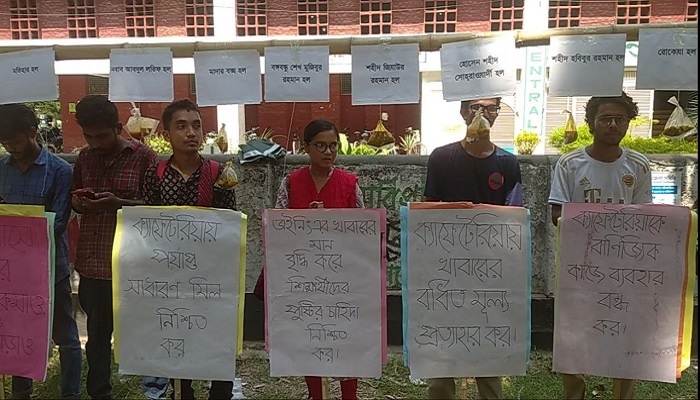 মন্নুজান হল
নবাব আবদুল লতিফ হল
মাদার বক্স হল
বঙ্গবন্ধু শেখ মুজিবুর
রহমান হল
শহীদ জিয়াউর
রহমান হল
হোসেন শহীদ
সোহরাওয়ার্দী হল
শহীদ হবিবুর রহমান হল
রোকেয়া হল
CENTRAL
ক্যাফেটেরিয়ায়
পর্যাপ্ত
সাধারণ মিল
নিশ্চিত
কর
ডাইনিংএর খাবারের
মান
বৃদ্ধি করে
শিক্ষার্থীদের
পুষ্টির চাহিদা
নিশ্চিত
কর।
ক্যাফেটেরিয়ায়
খাবারের
বর্ধিত মূল্য
প্রত্যাহার কর।
ক্যাফেটেরিয়াকে
বাণিজ্যিক
কাজে ব্যবহার
বন্ধ
কর।